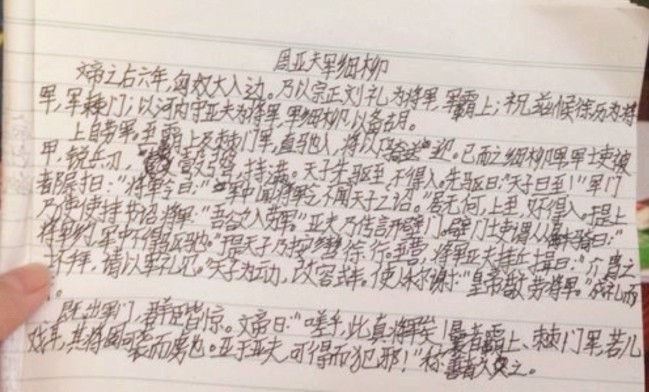 周亚夫军细柳
文帝之后六年,匈奴大入边。乃以宗正刘礼为将军,军霸上;祝兹候徐厉为将
军,军棘门;以河内守亚夫为将军,军细柳,以备胡。
上自劳军。至霸上及棘门军,直驰入,将以下骑送迎。已而之细柳军,军士吏被
甲,锐兵刃,彀弓弩,持满。天子先驱至,不得入。先驱曰:"天子且至!"军门
都尉曰:"将军令曰:'军中闻将军令,不闻天子之诏。'"居无何,上至,又不得入。于是上
乃使使持节诏将军:"吾欲入劳军。"亚夫乃传言开壁门。壁门士吏谓从属车骑曰:"
将军约,军中不得驱驰。"于是天子乃按辔徐行。至营,将军亚夫持兵揖曰:"介胄之
士不拜,请以军礼见。"天子为动,改容式车。使人称谢:"皇帝敬劳将军。"成礼而
去。
既出军门,群臣皆惊。文帝曰:"嗟乎,此真将军矣!曩者霸上、棘门军,若儿
戏耳,其将固可袭而虏也。至于亚夫,可得而犯邪!"称善者久之。